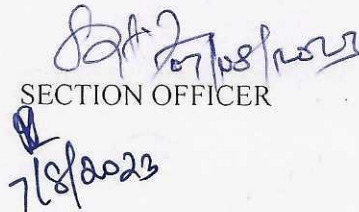 07/08/2023
SECTION OFFICER
7/8/2023